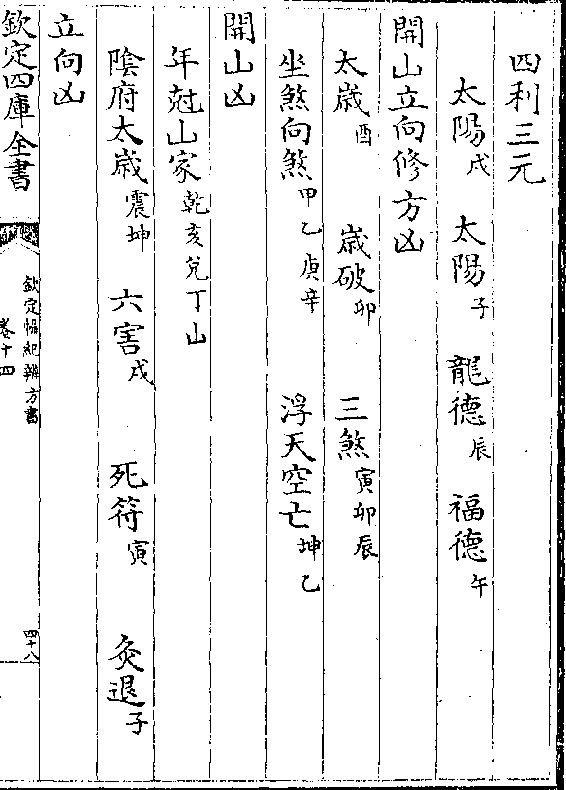 四利三元
太陽戌　太陽子　龍德辰　福德午
開山立向修方凶
太歲酉　歲破卯　三煞寅卯辰
坐煞向煞甲乙庚辛　浮天空亡坤乙
開山凶
年尅山家乾亥兌丁山
陰府太歲震坤　六害戌　死符寅　灸退子
立向凶
欽定四庫全書
欽定協紀辨方書
卷十四
四十八